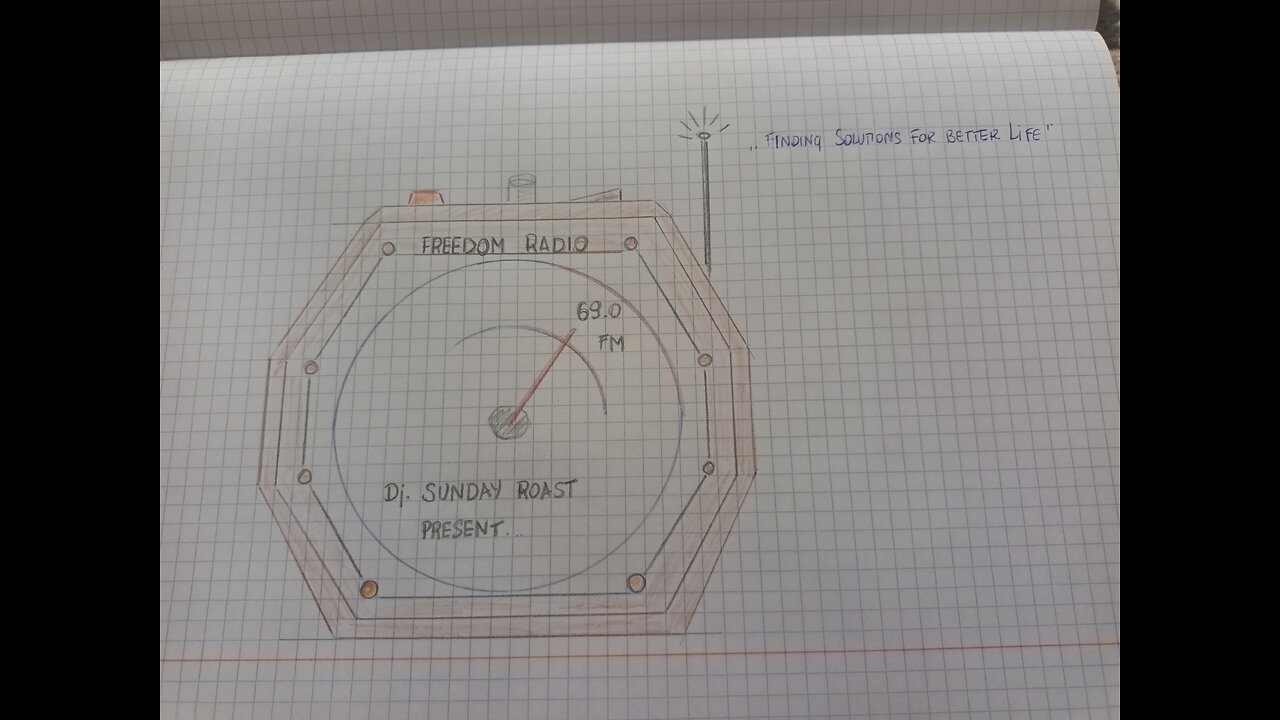 „FINDING SOLUTIONS FOR BETTER LIFE"
FREEDOM RADIO
69.0
FM
Dj. SUNDAY ROAST
PRESENT...